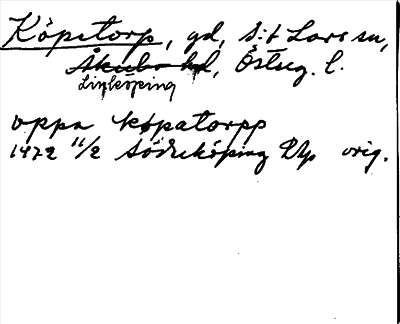 Köpetorp, gd, S:t Lars sn,
Åkerbo hd, Östug. l.
Linköping
oppa köpatorpp
1472 11/2 Söderköping Dp orig.